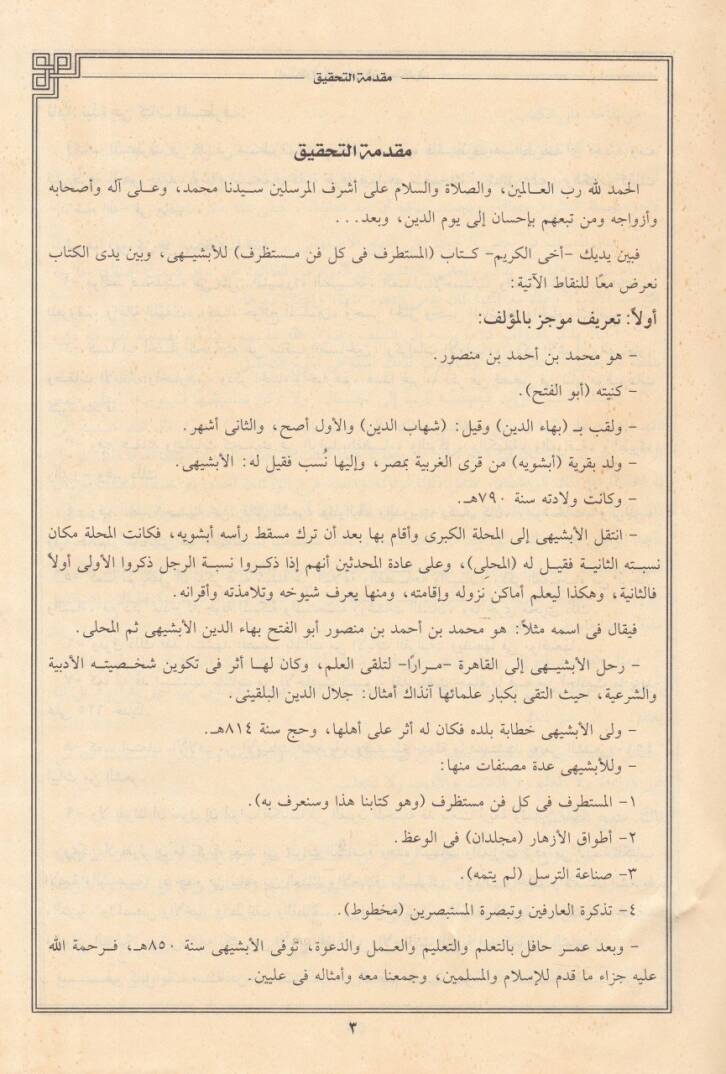 مقدمة التحقيق
مقدمة التحقيق
الحمد لله رب العالمين، والصلاة والسلام على أشرف المرسلين سيدنا محمد، وعلى آله وأصحابه
وأزواجه ومن تبعهم بإحسان إلى يوم الدين، وبعد...
فبين يديك -أخى الكريم- كتاب (المستطرف فى كل فن مستظرف) للأبشيهى، وبين يدى الكتاب
نعرض معًا للنقاط الآتية:
أولاً: تعريف موجز بالمؤلف:
- هو محمد بن أحمد بن منصور.
- كنيته (أبو الفتح).
- ولقب بـ (بهاء الدين) وقيل: (شهاب الدين) والأول أصح، والثانى أشهر.
- ولد بقرية (أبشويه) من قرى الغربية بمصر، وإليها نُسب فقيل له: الأبشيهى.
- وكانت ولادته سنة ٧٩٠هـ.
- انتقل الأبشيهى إلى المحلة الكبرى وأقام بها بعد أن ترك مسقط رأسه أبشويه، فكانت المحلة مكان
نسبته الثانية فقيل له (المحلِى)، وعلى عادة المحدثين أنهم إذا ذكروا نسبة الرجل ذكروا الأولى أولاً
فالثانية، وهكذا ليعلم أماكن نزوله وإقامته، ومنها يعرف شيوخه وتلامذته وأقرانه.
فيقال فى اسمه مثلاً: هو محمد بن أحمد بن منصور أبو الفتح بهاء الدين الأبشيهى ثم المحلى.
- رحل الأبشيهى إلى القاهرة -مرارًا- لتلقى العلم، وكان لها أثر فى تكوين شخصيته الأدبية
والشرعية، حيث التقى بكبار علمائها آنذاك أمثال: جلال الدين البلقينى.
- ولى الأبشيهى خطابة بلده فكان له أثر على أهلها، وحج سنة ٨١٤هـ.
- وللأبشيهى عدة مصنفات منها:
١- المستطرف فى كل فن مستظرف (وهو كتابنا هذا وسنعرف به).
٢- أطواق الأزهار (مجلدان) فى الوعظ.
٣- صناعة الترسل (لم يتمه).
٤- تذكرة العارفين وتبصرة المستبصرين (مخطوط).
- وبعد عمر حافل بالتعلم والتعليم والعمل والدعوة، تُوفى الأبشيهى سنة ٨٥٠هـ، فرحمة الله
عليه جزاء ما قدم للإسلام والمسلمين، وجمعنا معه وأمثاله فى عليين.
٣